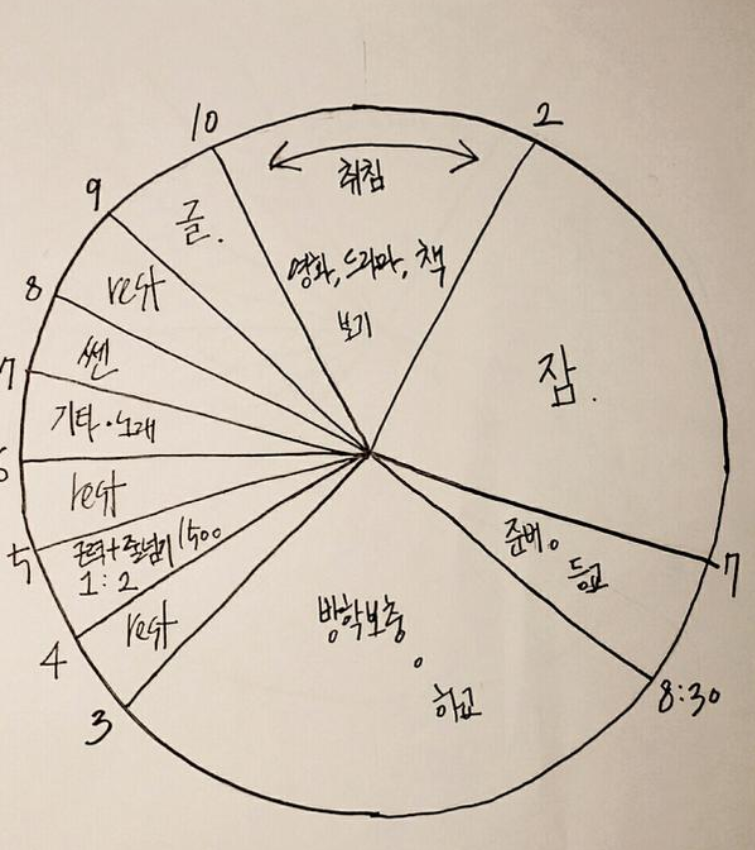 10
2
취침
영화, 드라마, 책
보기
9
글.
8
rest
7
쎈
기타·노래
6
rest
5
근력+줄넘기 1500
1:2
4
rest
3
잠.
7
준비.
등교
8:30
방학보충
하교